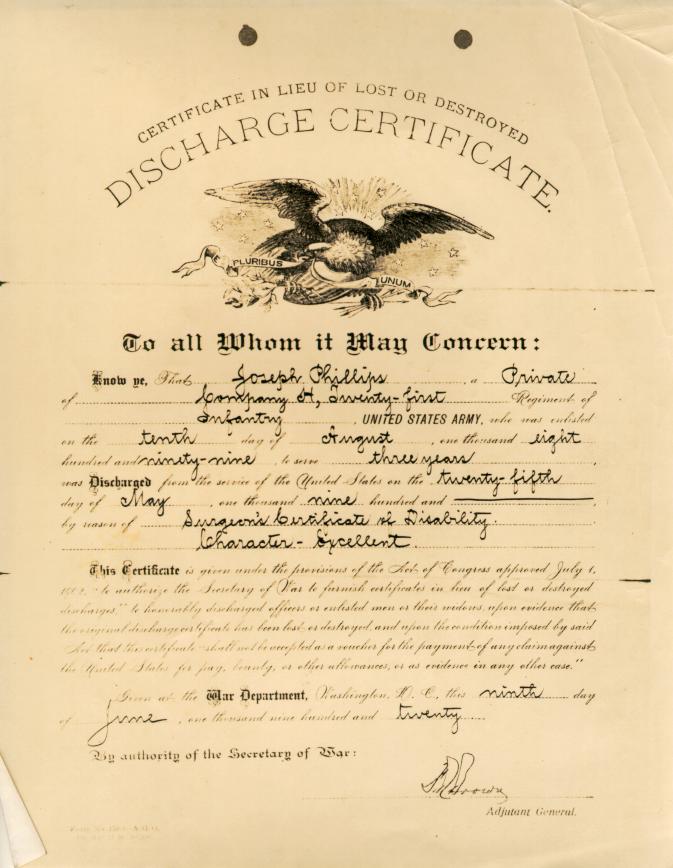 CERTIFICATE IN LIEU OF LOST OR DESTROYED
DISCHARGE CERTIFICATE.
PLURIBUS
UNUM
To all Whom it May Concern:
Know ye, That Joseph Phillips, a Private
of Company H, Twenty-first Regiment of
Infantry, UNITED STATES ARMY, who was enlisted
on the tenth day of August, one thousand eight
hundred and ninety-nine, to serve three years,
was Discharged from the service of the United States on the twenty-fifth
day of May, one thousand nine hundred and
by reason of Surgeon's Certificate of Disability.
Character - Excellent.
This Certificate is given under the provisions of the Act of Congress approved July 1,
"to authorize the Secretary of War to furnish certificates in lieu of lost or destroyed
discharges," to honorably discharged officers or enlisted men or their widows, upon evidence that
the original discharge certificate has been lost or destroyed, and upon the condition imposed by said
Act that this certificate "shall not be accepted as a voucher for the payment of any claim against
the United States for pay, bounty, or other allowances, or as evidence in any other case."
Given at the War Department, Washington, D. C., this ninth day
of June, one thousand nine hundred and twenty
By authority of the Secretary of War:
Adjutant General.